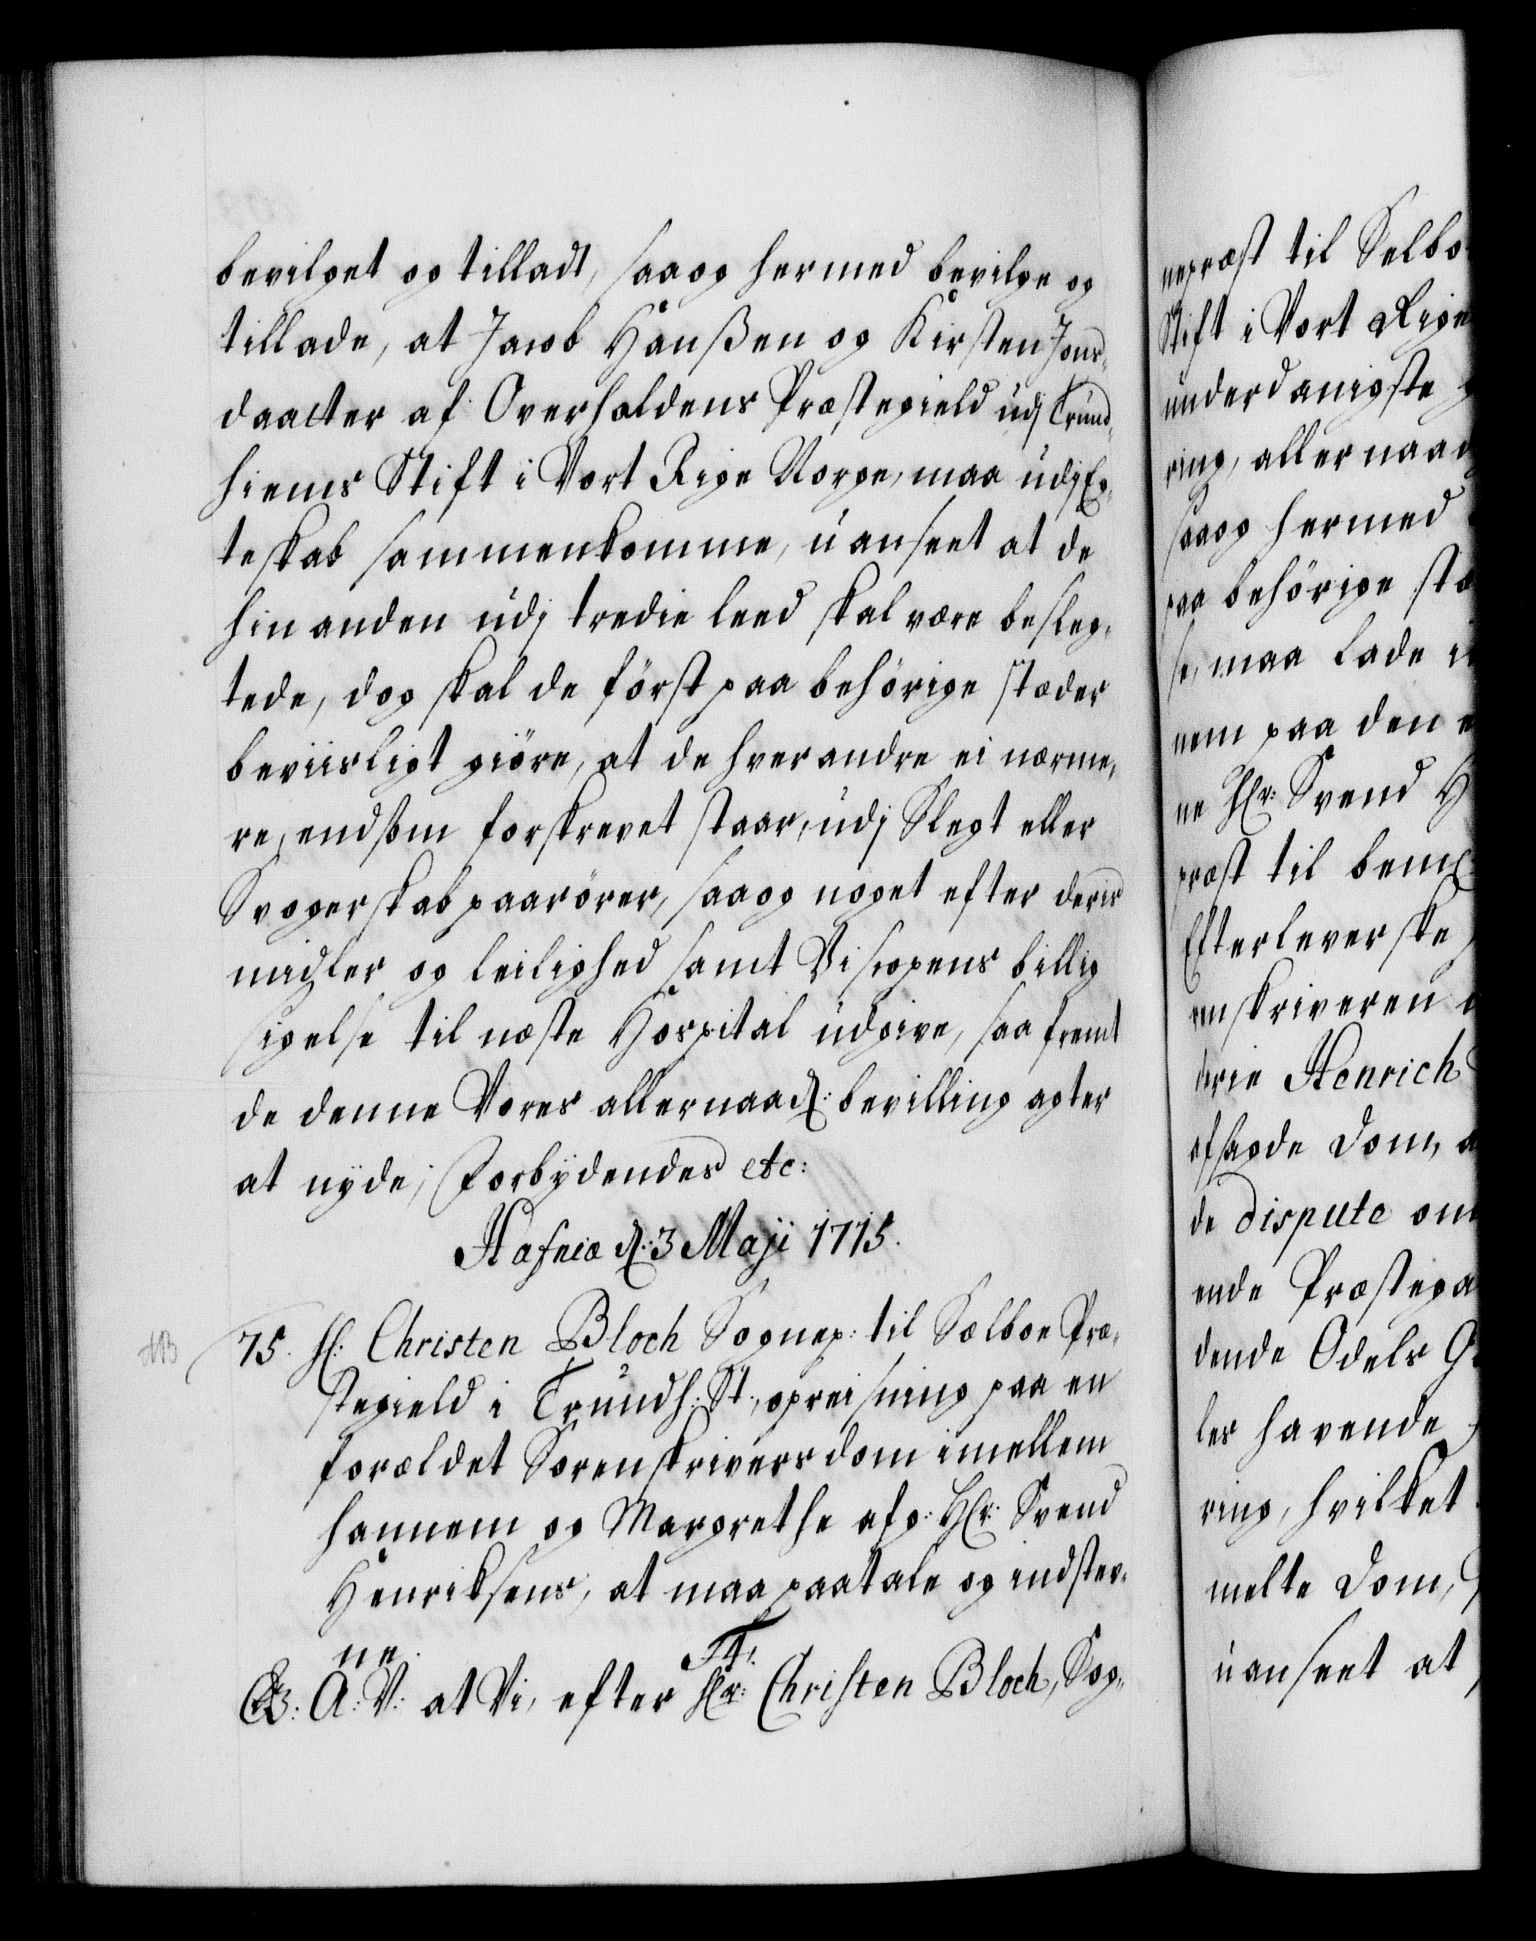 bevilget og tilladt, saa og hermed bevilge og
tillade, at Jacob Hanßen og Kirsten Jons-
daatter af Overhaldens Præstegield udj Trund-
hiems Stift i Vort Rige Norge, maa udj Eg-
teskab sammenkomme, uanseet at de
hinanden udj tredie leed skal være besleg-
tede, dog skal de först paa behörige stæder
beviisligt giöre, at de hverandre ei nærme-
re, endsom forskrevet staar, udj Slegt eller
Svogerskab paarörer, saa og noget efter deris
midler og leilighed samt Biscopens billig
sigelse til næste Hospital udgive, saa fremt
de denne Vores allernaad: bevilling agter
at nyde; Forbydendes etc:
Hafniæ d: 3 Maji 1715.
NB
75. H: Christen Bloch Sognep: til Sælboe Præ-
stegield i Trundh: St:, opreisning paa en
forældet Sorenskrivers dom imellem
hannem og Margrethe afg: Hr: Svend
Henriksens, at maa paatale og indstev-
ne.
F4.
G: A: V: at Vi, efter Hr: Christen Bloch, Sog-
nepræst til Selbo
Stift i Vort Rige
underdanigste
ring, allernaad
saa og hermed
paa behörige stæ
se, maa lade i
nem paa den
ne Hr: Svend H
præst til beml:
Efterleverske
renskriveren
terie Henrich
afsagde Dom, a
de dispute om
ende Præstega
dende Odels G
les havende
ring, hvilket
melte Dom,
uanseet at